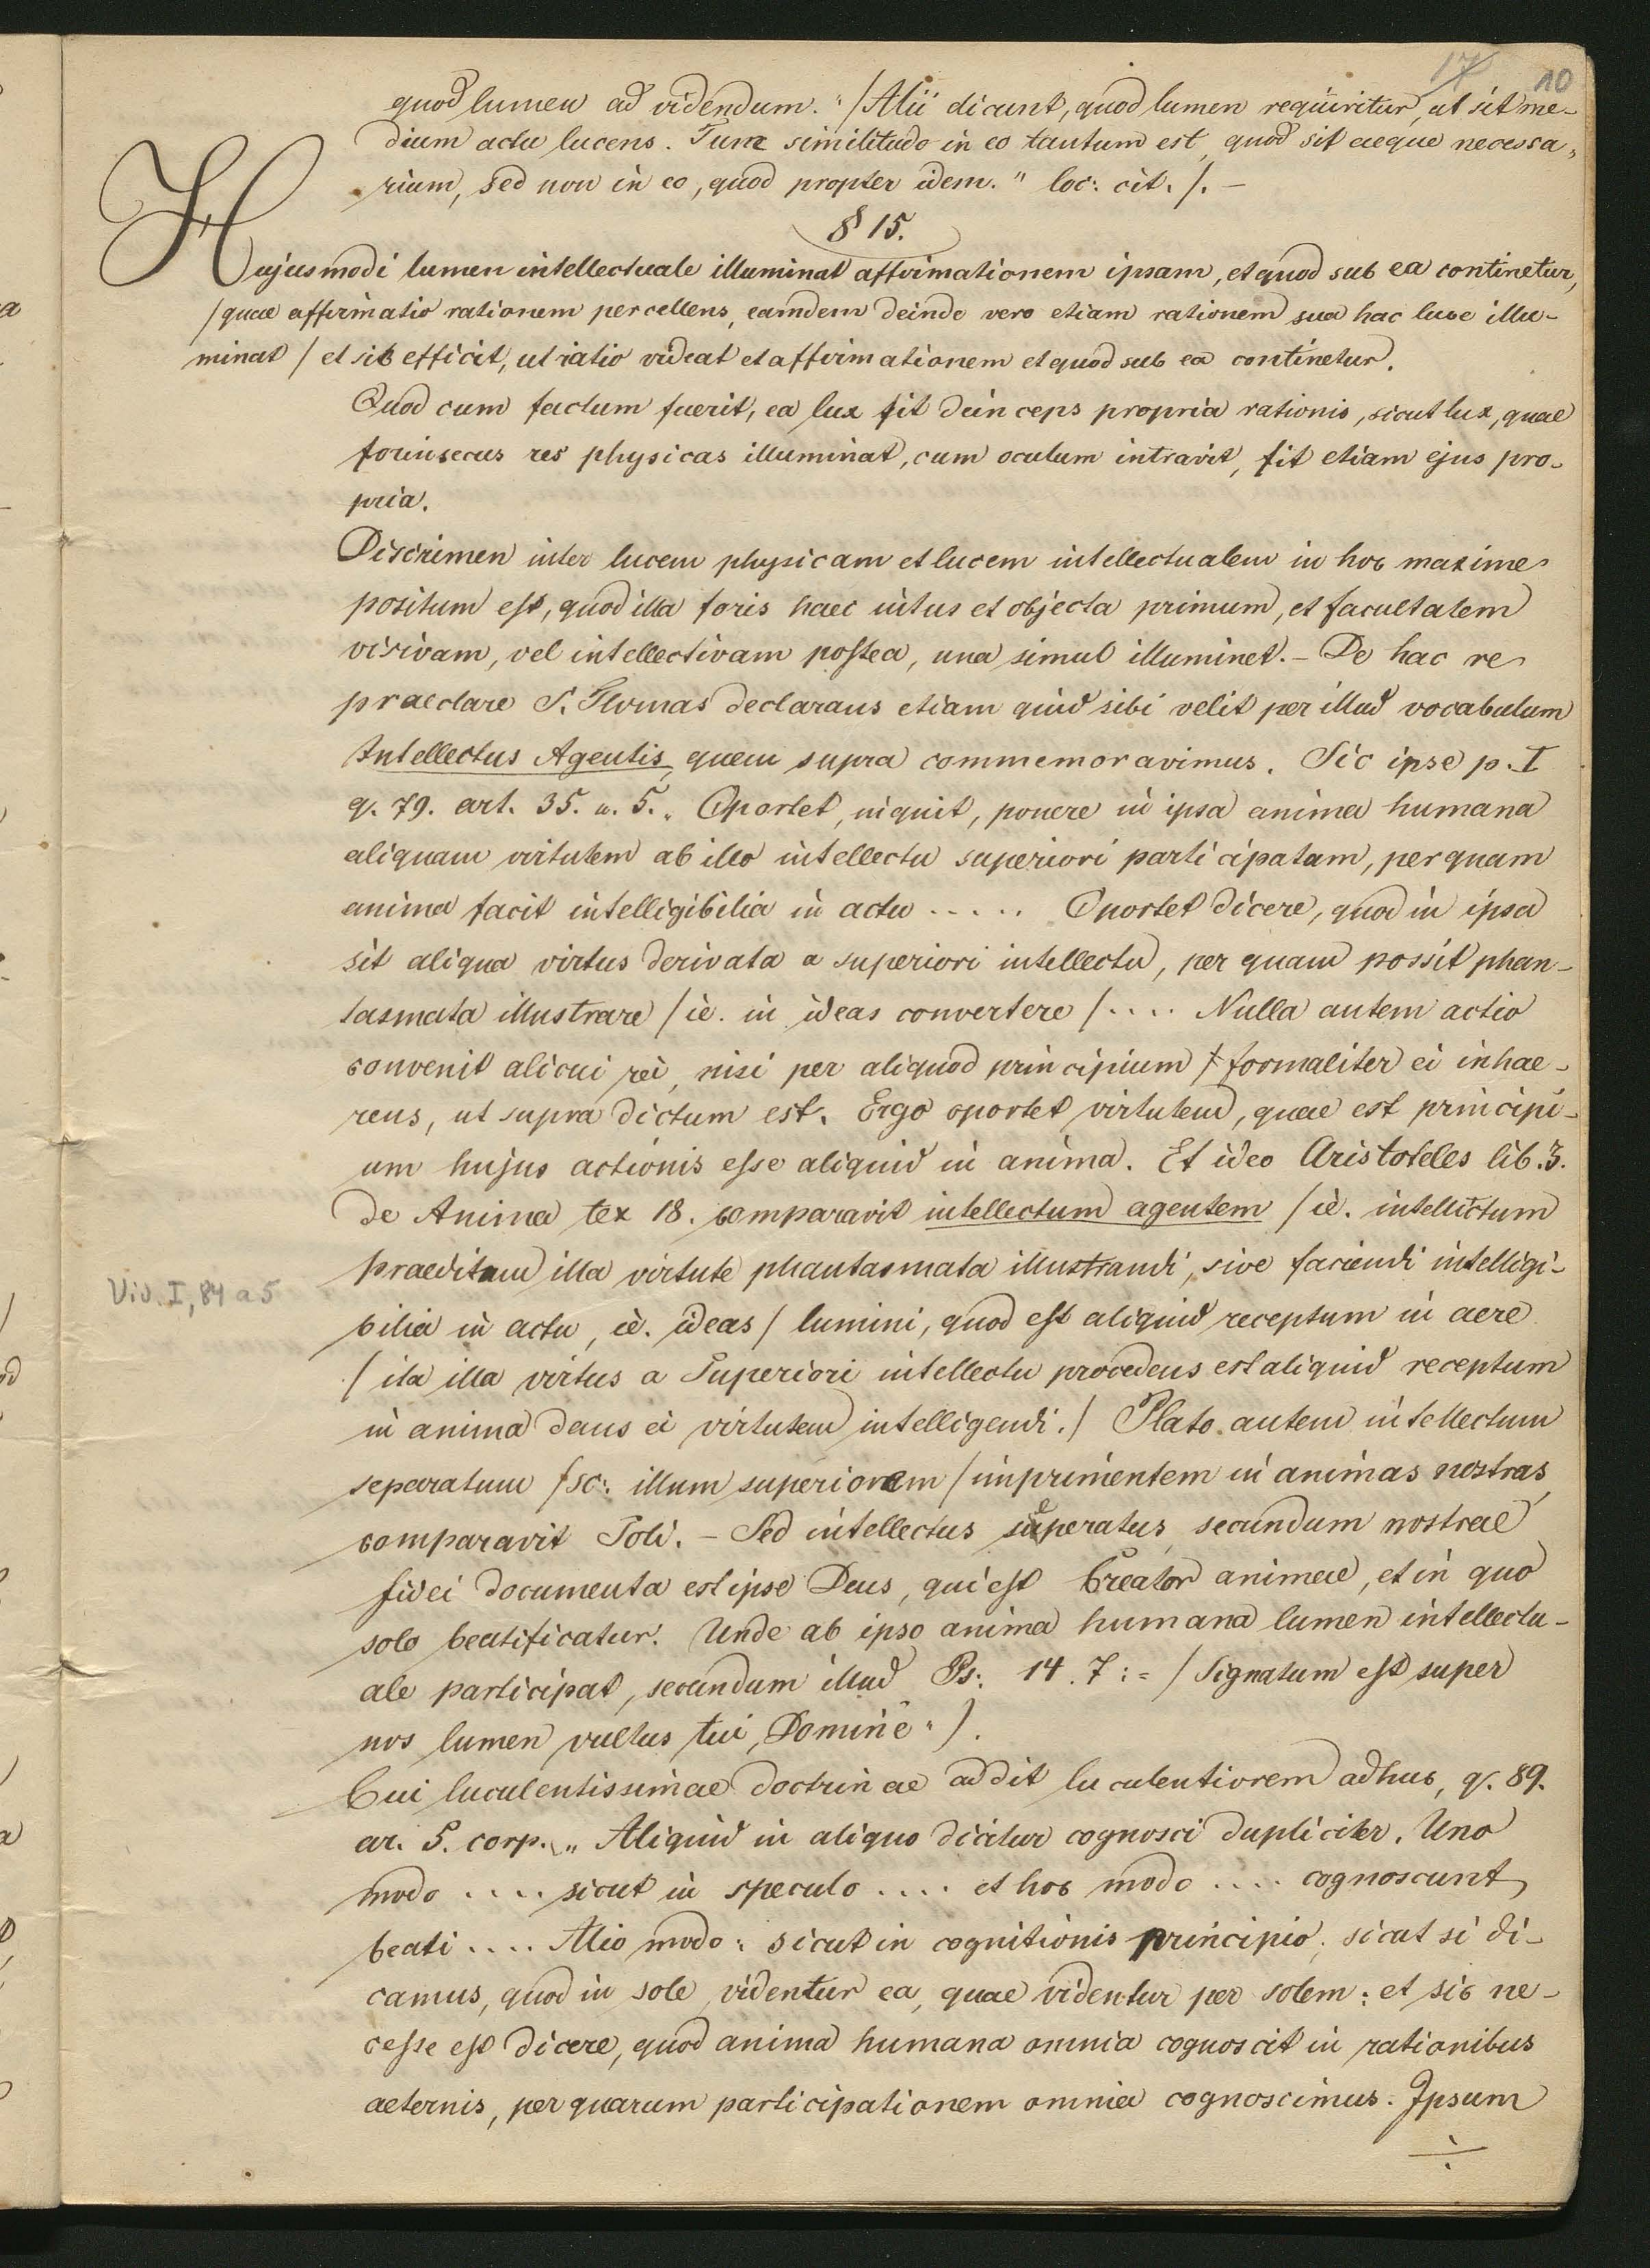 17 10
quod lumen ad videndum." /Alii dicunt, quod lumen requiritur, ut sit me-
dium actu lucens. Tunc similitudo in eo tantum est, quod sit aeque necessa-
rium, sed non in eo, quod propter idem." loc: cit. /. –
§ 15.
Hujusmodi lumen intellectuale illuminat affirmationem ipsam, et quod sub ea continetur,
/quae affirmatio rationem percellens, eamdem deinde vero etiam rationem sua hac luce illu-
minat / et sic efficit, ut ratio videat et affirmationem et quod sub ea continetur.
Quod cum factum fuerit, ea lux fit deinceps propria rationis, sicut lux, quae
forinsecus res physicas illuminat, cum oculum intravit, fit etiam ejus pro-
pria.
Discrimen inter lucem physicam et lucem intellectualem in hoc maxime
positum est, quod illa foris haec intus et objecta primum, et facultatem
visivam, vel intellectivam postea, una simul illuminet. – De hac re
praeclare S. Thomas declarans etiam quid sibi velit per illud vocabulum
Intellectus Agentis, quem supra commemoravimus. Sic ipse p. I
q. 79. art. 35. u. 5. „ Oportet, inquit, ponere in ipsa anima humana
aliquam virtutem ab illo intellectu superiori participatam, per quam
anima facit intelligibilia in actu ..... Oportet dicere, quod in ipsa
sit aliqua virtus derivata a superiori intellectu, per quam possit phan-
tasmata illustrare / ie. in ideas convertere / .... Nulla autem actio
convenit alicui rei, nisi per aliquod principium formaliter ei inhae-
rens, ut supra dictum est. Ergo oportet virtutem, quae est principi-
um hujus actionis esse aliquid in anima. Et ideo Aristoteles lib. 3.
de Anima tex 18. comparavit intellectum agentem / ie. intellectum
praeditum illa virtute phantasmata illustrandi, sive faciendi intelligi-
Vid. I, 84 a 5
bilia in actu, ie. ideas / lumini, quod est aliquid receptum in aere
/ ita illa virtus a Superiori intellectu procedens est aliquid receptum
in anima dans ei virtutem intelligendi. / Plato autem intellectum
separatum /sc: illum superiorem / imprimentem in animas nostras,
comparavit Soli. – Sed intellectus seperatus secundum nostrae
fidei documenta est ipse Deus, qui est Creator animae, et in quo
solo beatificatur. Unde ab ipso anima humana lumen intellectu-
ale participat, secundum illud Ps: 14. 7: = / Signatum est super
nos lumen vultus tui, Domine " ).
Cui luculentissimae doctrinae addit luculentiorem adhuc, q. 89.
ar. 5. corp. „ Aliquid in aliquo dicitur cognosci dupliciter. Uno
modo .... sicut in speculo .... et hoc modo .... cognoscunt
beati .... Alio modo: sicut in cognitionis principio; sicut si di-
camus, quod in sole videntur ea, quae videntur per solem: et sic ne-
cesse est dicere, quod anima humana omnia cognoscit in rationibus
aeternis, per quarum participationem omnia cognoscimus. Ipsum